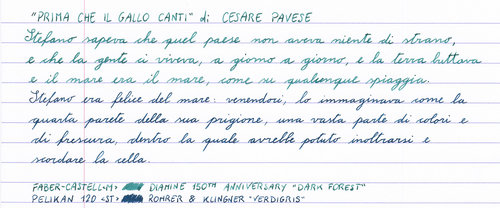 "PRIMA CHE IL GALLO CANTI" di CESARE PAVESE
Stefano sapeva che quel paese non aveva niente di strano,
e che la gente ci viveva, a giorno a giorno, e la terra buttava
e il mare era il mare, come su qualunque spiaggia.
Stefano era felice del mare: venendoci, lo immaginava come la
quarta parete della sua prigione, una vasta parete di colori e
di frescura, dentro la quale avrebbe potuto inoltrarsi e
scordare la cella.
FABER-CASTELL <M> DIAMINE 150TH ANNIVERSARY "DARK FOREST"
PELIKAN 120 <ST> ROHRER & KLINGNER "VERDIGRIS"